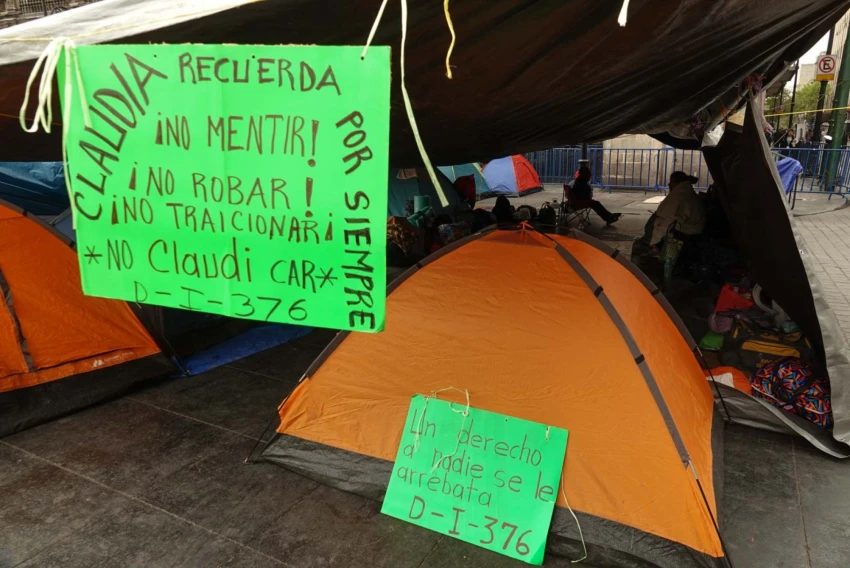 CLAUDIA
RECUERDA
POR SIEMPRE
¡NO MENTIR!
¡NO ROBAR!
¡NO TRAICIONAR¡
*NO Claudi CAR*
D-I-376
Un derecho
a nadie se le
arrebata
D-I-376